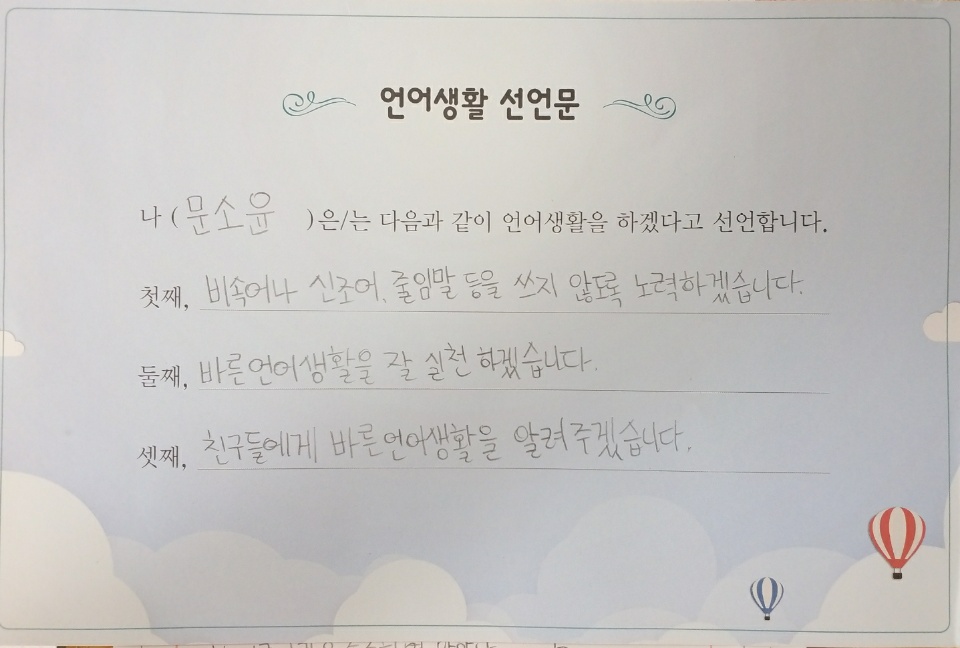 언어생활 선언문
나 ( 문소윤 )은/는 다음과 같이 언어생활을 하겠다고 선언합니다.
첫째, 비속어나 신조어, 줄임말 등을 쓰지 않도록 노력하겠습니다.
둘째, 바른언어생활을 잘 실천하겠습니다.
셋째, 친구들에게 바른언어생활을 알려주겠습니다.